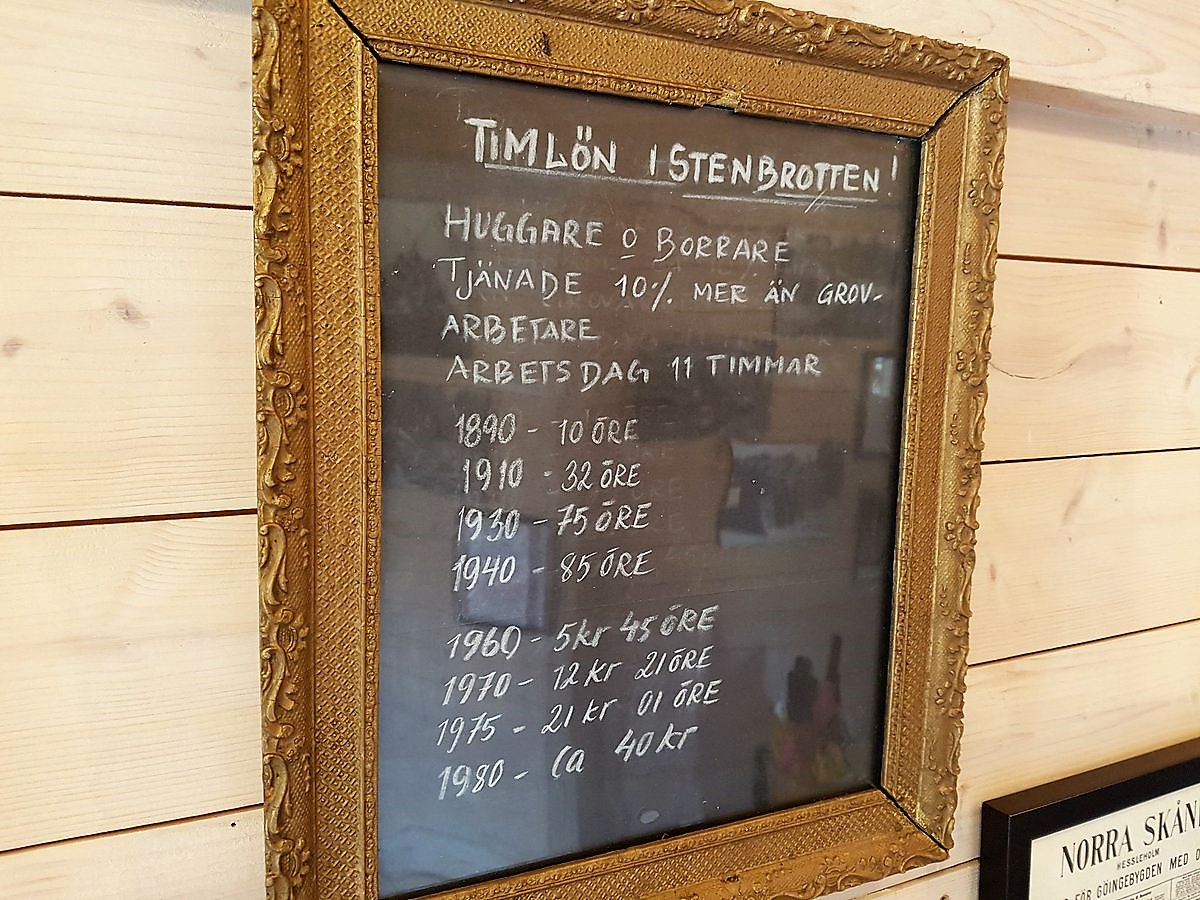 TIMLÖN I STENBROTTEN!
HUGGARE O BORRARE
TJÄNADE 10% MER ÄN GROV-
ARBETARE
ARBETSDAG 11 TIMMAR
1890 - 10 ÖRE
1910 - 32 ÖRE
1930 - 75 ÖRE
1940 - 85 ÖRE
1960 - 5 kr 45 ÖRE
1970 - 12 kr 21 ÖRE
1975 - 21 kr 01 ÖRE
1980 - Ca 40 kr
NORRA SKÅN
HESSLEHOLM
FÖR GÖINGEBYGDEN MED O